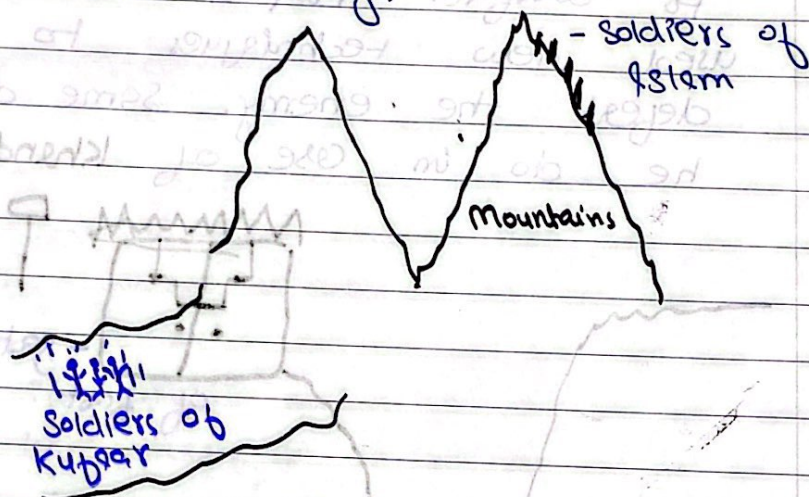 - Soldiers of
Islam
Mountains
Soldiers of
Kuffar